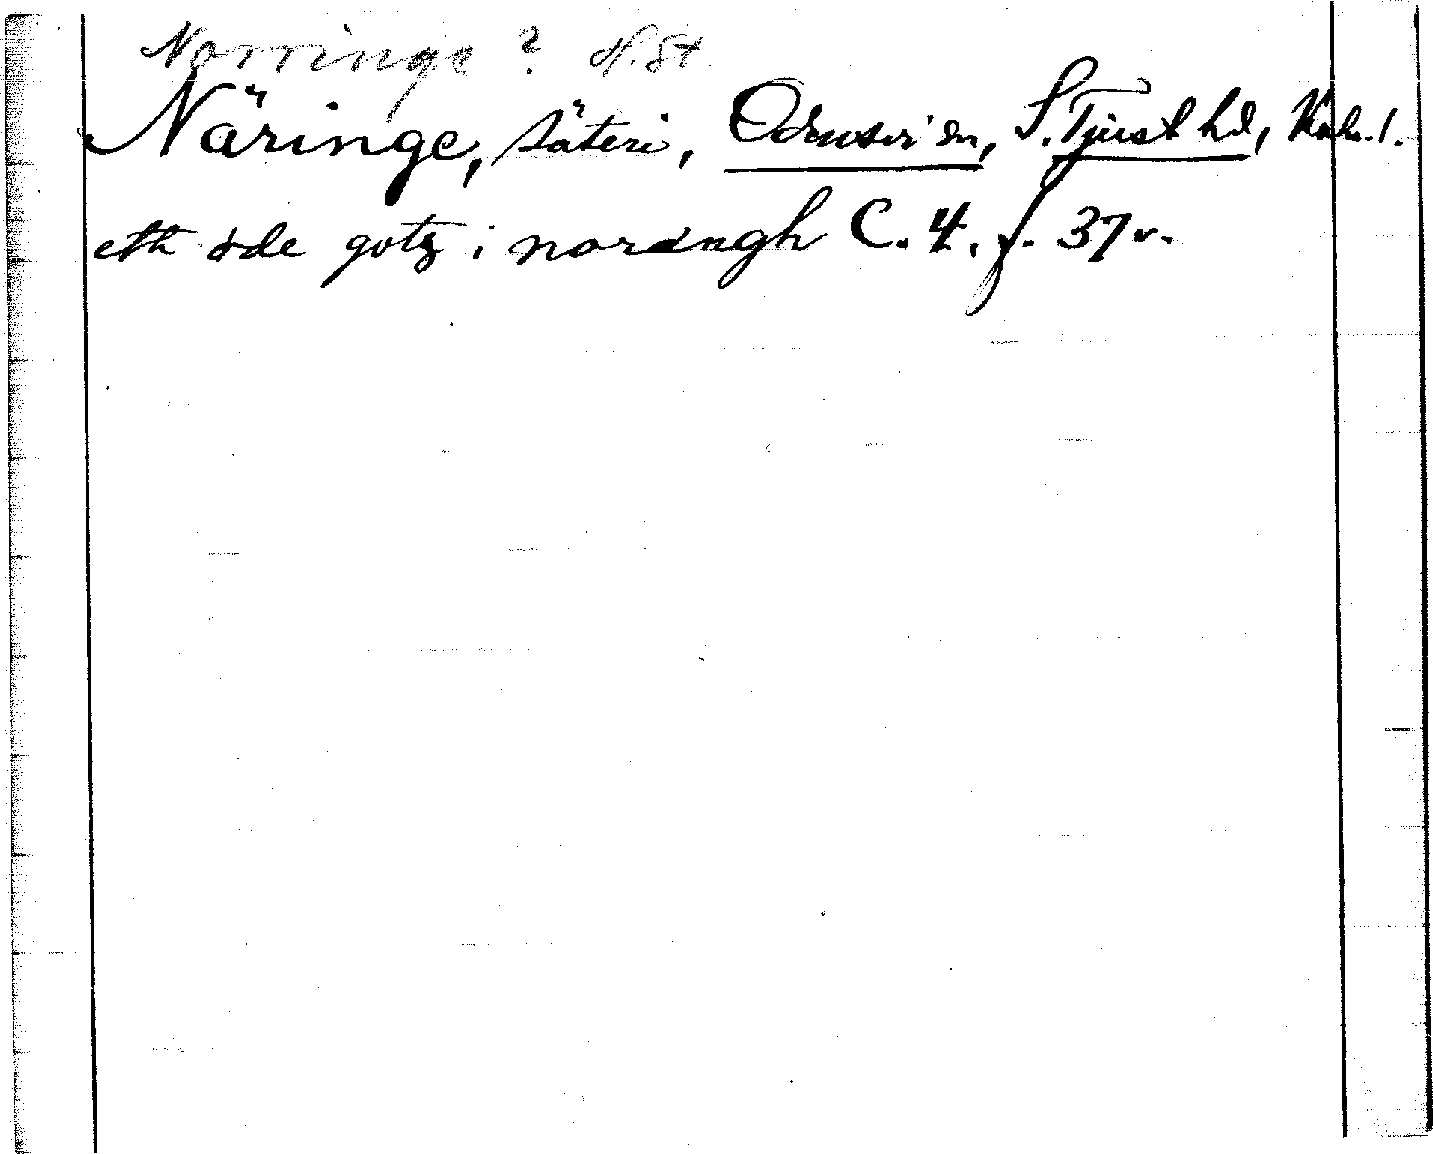 Norringe? N. St
Näringe, säteri, Odensvi sn, S. Tjust hd, Kalm. l.
eth öde gotz i norængh C. 4. f. 37 v.